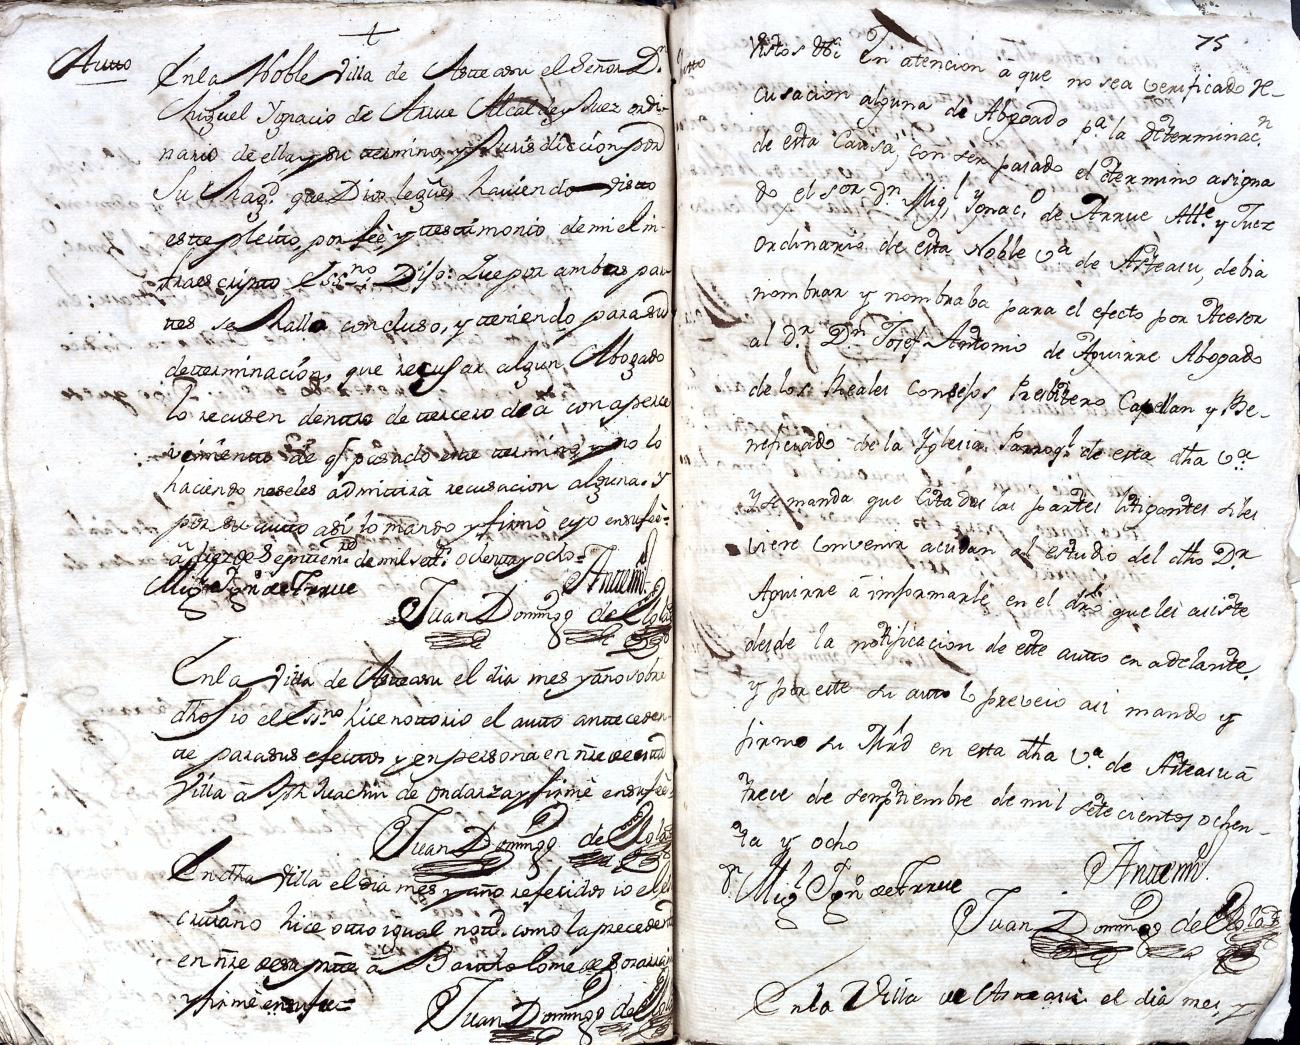 Autto
En la Noble Villa de Asteasu el Señor Dn
Miguel Ygnacio de Arrue Alcalde y Juez ordi-
nario de ella, y su termino, y Jurisdiccion por
Su Magd. que Dios legue, haviendo visto
este pleito, por feè y testimonio de mi el in-
fraescripto Essno. Dijo: Que por ambas par-
tes se halla concluso, y teniendo para su
determinación, que recusar algun Abogado
lo recusen dentro de tercero dia con aperce
vimiento de qe pasado este termino, y no lo
haciendo noseles admittirà recusacion alguna. Y
por su autto asi lo mando y firmò e yo en su feè
à diez de Septiem.re de mil sett.s ochenta y ocho=
Migl Ygn.o de Arrue Antemi.
Juan Domingo de
En la Villa de Asteasu el dia mes y año sobre
dhos io el Essno hice nottorio el autto anteceden-
te para sus efecttos y en persona en nre de esta
Villa â Jph Juachin de Ondarza y firmè en su feè
Juan Domingo de
En dha Villa el dia mes y año referidos io el es
crivano hice otto igual nott.n como la precedente
en nre de su pnte â Bartholome de Soraiz
y firmè en su fee=
Juan Domingo de
75
Autto
Vistos &c.i En atencion a que no sea verificado re-
cusacion alguna de Abogado pa la determinacn
de esta Causa, con ser pasado el termino asigna
do, el sor dn Migl Ygnaco de Arrue Alle y Juez
Ordinario de esta Noble Va de Asteasu, debia
nombrar y nombraba para el efecto por Acesor
al dr Dn Josef Antonio de Aguirre Abogado
de los Reales Consejos, Presbitero Capellan y Be-
neficiado de la Yglesia Parroql de esta dha Va
Y se manda que Citadas las partes litigantes siles
viere convenir acudan al estudio del dho Dr
Aguirre â informarle en el dro que les asiste
desde la notificacion de este autto en adelante
y por este su autto lo preveio asi mando y
firmo su Mrd en esta dha Va de Asteasu â
trece de septtiembre de mil sete cientos ochen-
ta y ocho
Dn Migl Ygno de Arrue Antemi.
Juan Domingo de
En la Villa de Asteasu el dia mes, y